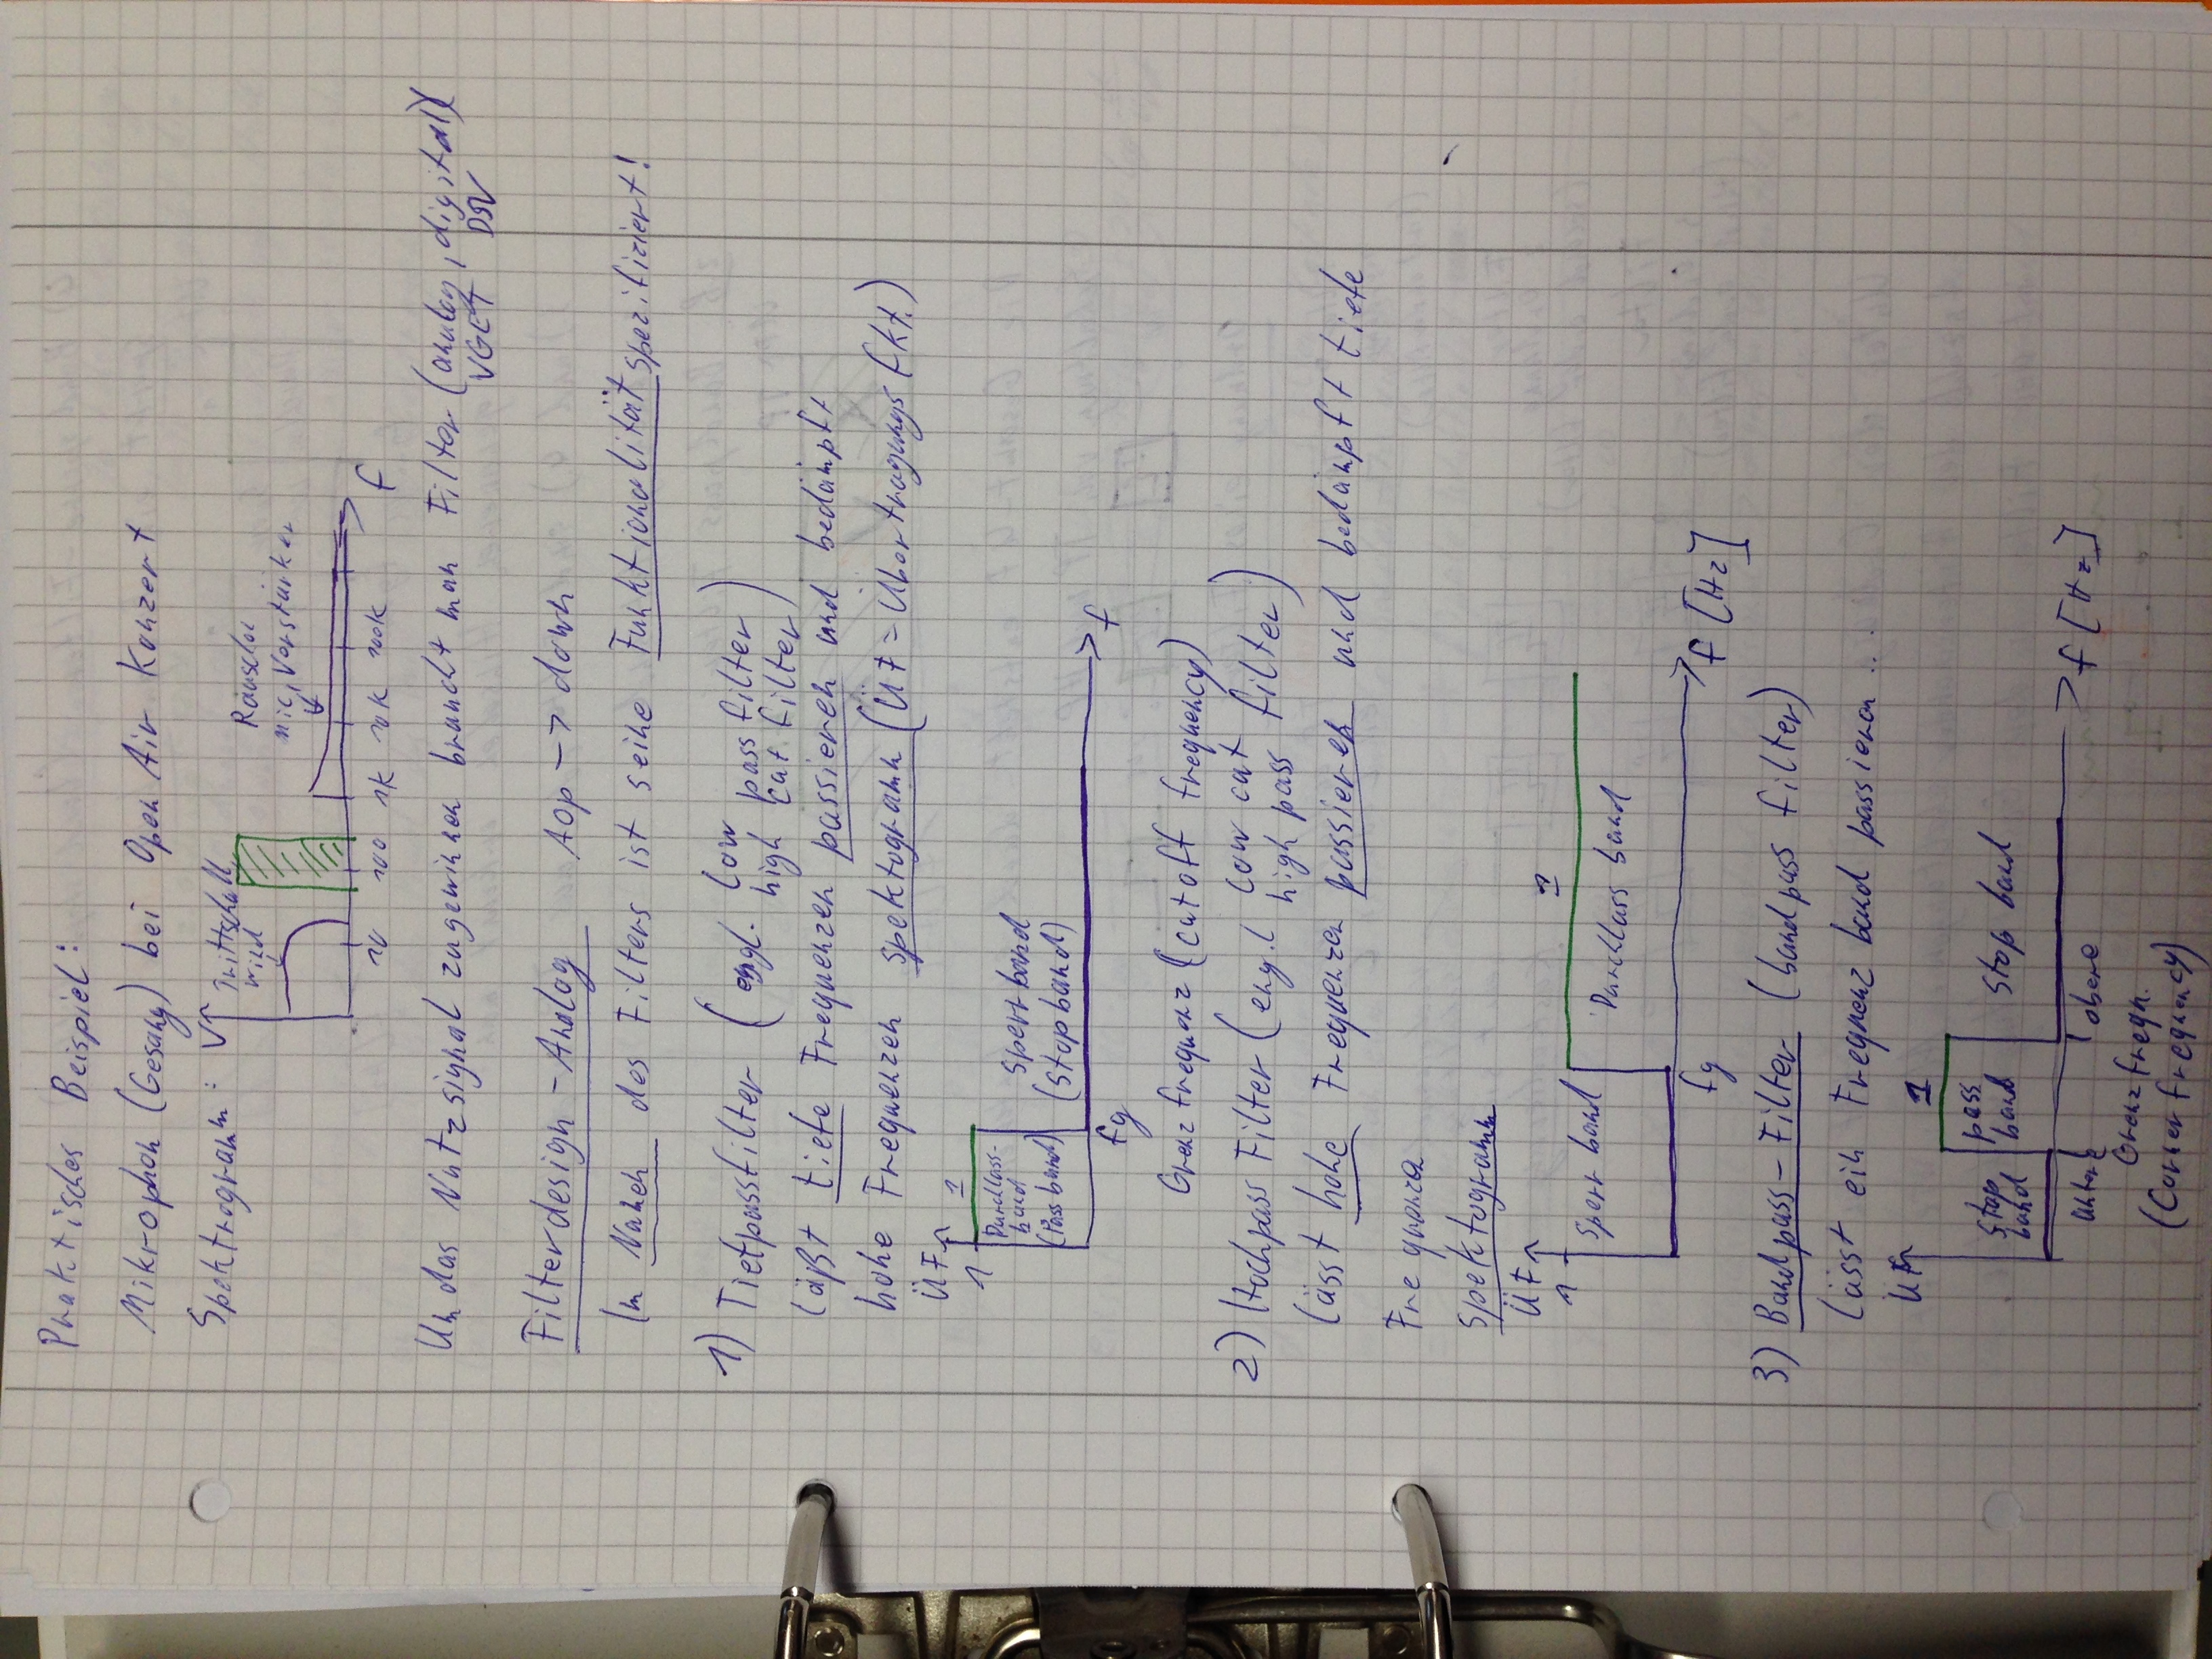 Praktisches Beispiel:
Mikrophon (Gesang) bei Open Air Konzert
Spektrogramm: V
Trittschall,
Wind
Rauschen
Mic, Vorstärker
10 100 1K 10K 100K f
Um das Nutzsignal zugewinnen braucht man Filter (analog, digital)
VGET DSV
Filterdesign - Analog Top -> down
Im Namen des Filters ist seine Funktionalität spezifiziert!
1) Tiefpassfilter (engl. low pass filter
high cut filter)
läßt tiefe Frequenzen passieren und bedämpft
hohe Frequenzen Spektogramm (ÜF = Übertragungsfkt.)
ÜF
1
1
Durchlass-
band
(Passband)
Sperrband
(Stopband)
fg
f
Grenzfrequenz (cutoff frequency)
2) Hochpass Filter (engl. low cut
high pass filter)
lässt hohe Frequenzen passieren und bedämpft tiefe
Frequenzen
Spektogramm
ÜF
1
1
Sperrband
Durchlassband
fg
f [Hz]
3) Bandpass-Filter (bandpass filter)
lässt ein Frequenzband passieren ...
ÜF
1
stop
band
pass
band
stop band
f [Hz]
untere obere
Grenzfrequ.
(Corner frequency)